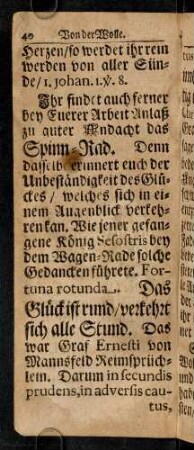 40 Von der Wolle.
Herzen/so werdet ihr rein
werden von aller Sün-
de/1. Johan. 1. ℣. 8.
Ihr findet auch ferner
bey Euerer Arbeit Anlaß
zu guter Andacht das
Spinn-Rad. Denn
dasselb erinnert euch der
Unbeständigkeit des Glü-
ckes/ welches sich in ei-
nem Augenblick verkeh-
ren kan. Wie jener gefan-
gene König Sesostris bey
dem Wagen-Rade solche
Gedancken führete. For-
tuna rotunda. Das
Glück ist rund/verkehrt
sich alle Stund. Das
war Graf Ernesti von
Mannsfeld Reimsprüch-
lein. Darum in secundis
prudens, in adversis cau-
tus,